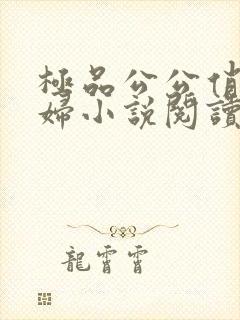 極品公公俏
婦小說閱讀
龍霄霄